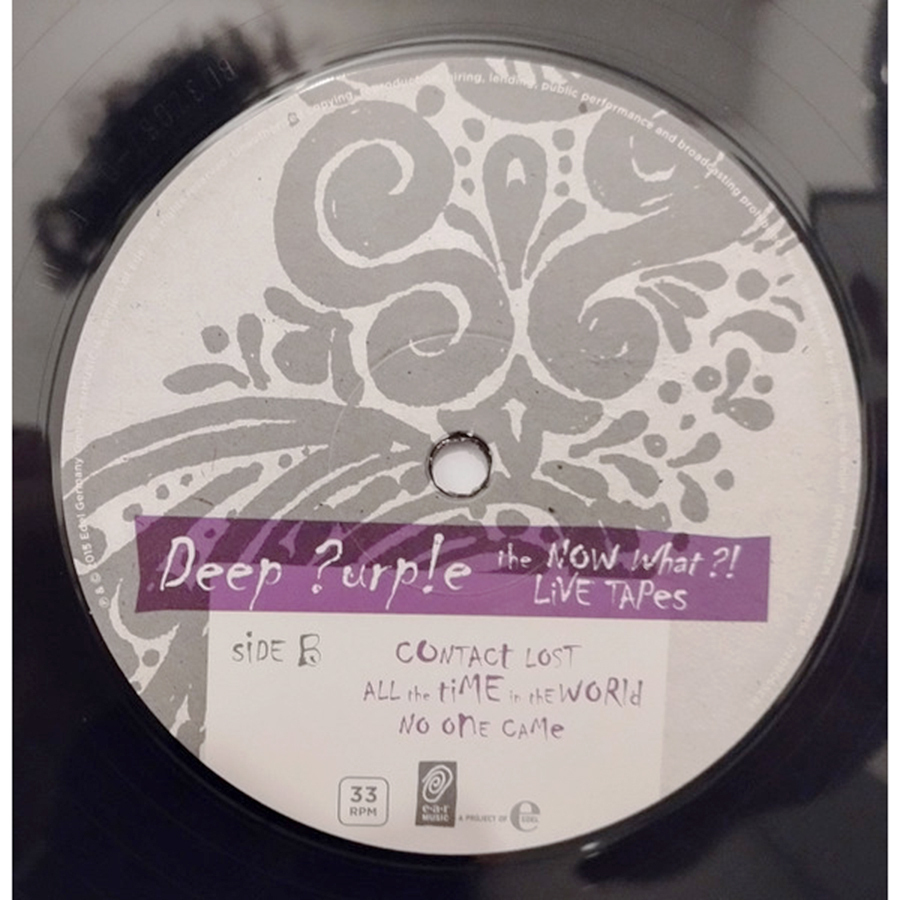 copying, reproduction, hiring, lending, public performance and broadcasting prohibited
℗ & © 2015 Edel Germany
Deep ?urp!e
the NOW What ?!
LiVE TAPes
siDE B
CONTACt LOST
ALL the tiME in thE WORld
NO ONE CAMe
33
RPM
e·a·r
MUSIC
A PROJECT OF
e
EDEL